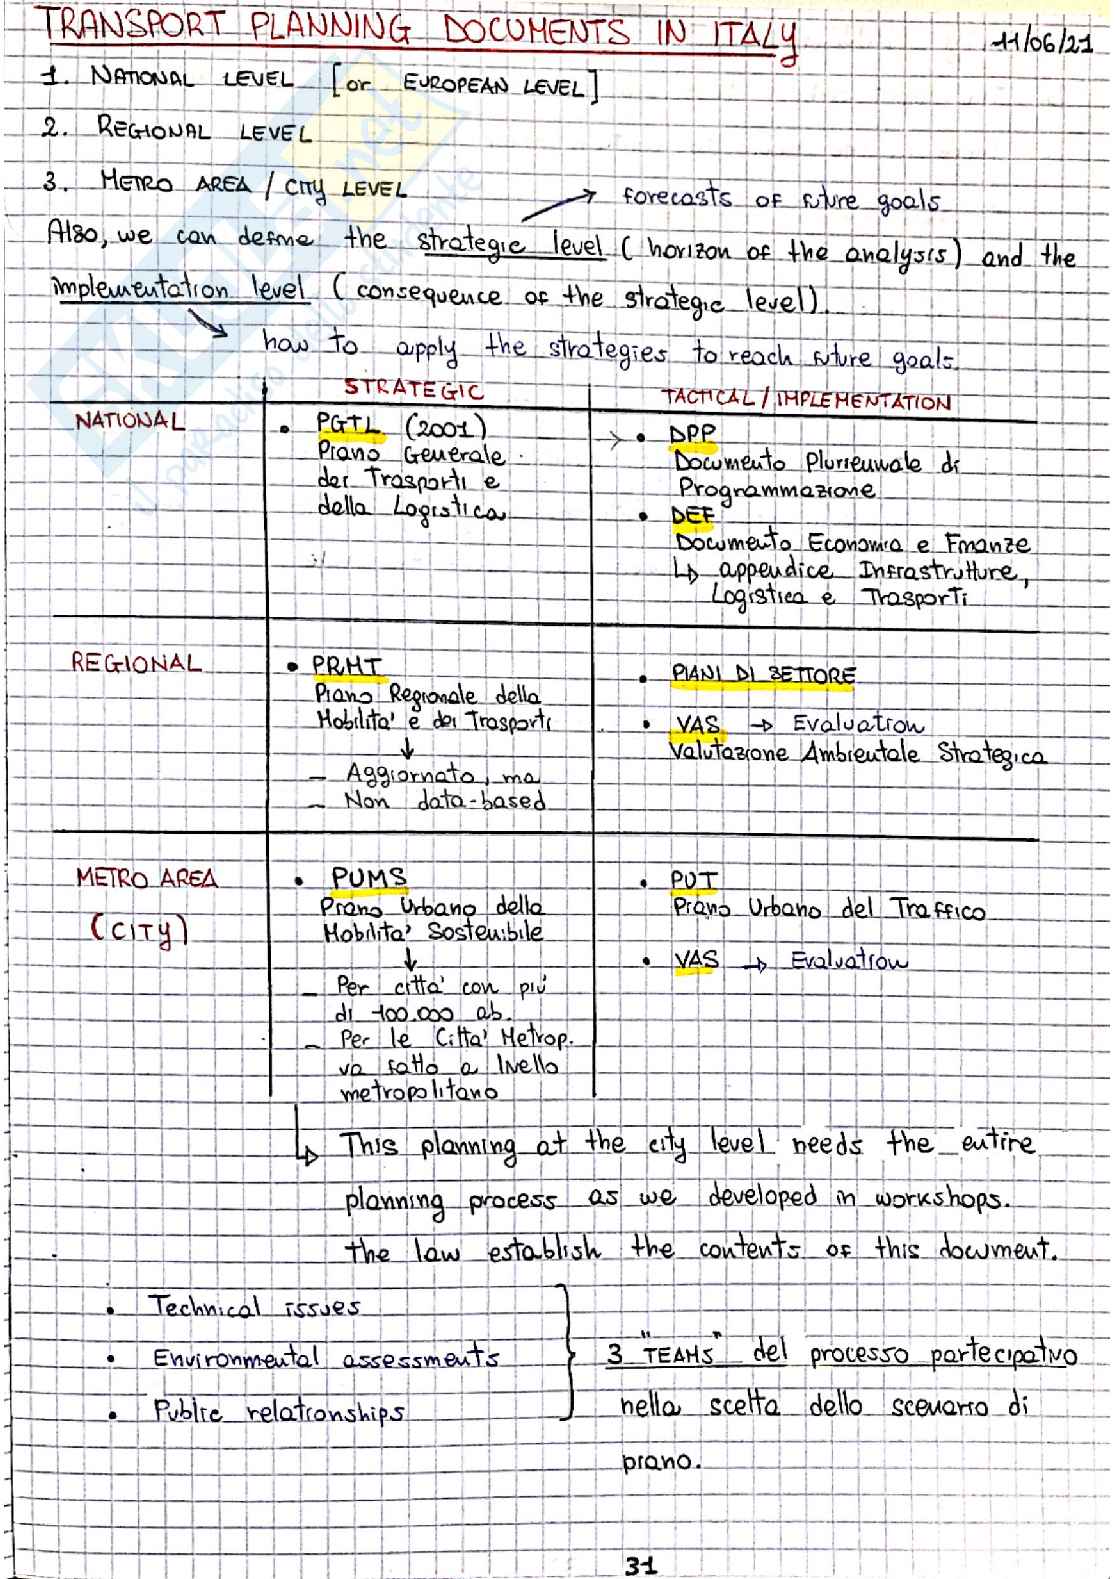 TRANSPORT PLANNING DOCUMENTS IN ITALY
11/06/21
1. NATIONAL LEVEL [or EUROPEAN LEVEL]
2. REGIONAL LEVEL
3. METRO AREA / CITY LEVEL
→ forecasts of future goals
Also, we can define the strategic level (horizon of the analysis) and the
implementation level (consequence of the strategic level).
→ how to apply the strategies to reach future goals.
STRATEGIC
TACTICAL / IMPLEMENTATION
NATIONAL
• PGTL (2001)
Piano Generale
dei Trasporti e
della Logistica
→ • DPP
Documento Pluriennale di
Programmazione
• DEF
Documento Economia e Finanze
↳ appendice Infrastrutture,
Logistica e Trasporti
REGIONAL
• PRMT
Piano Regionale della
Mobilita' e dei Trasporti
↓
– Aggiornato, ma
– Non data-based
• PIANI DI SETTORE
• VAS → Evaluation
Valutazione Ambientale Strategica
METRO AREA
(CITY)
• PUMS
Piano Urbano della
Mobilita' Sostenibile
↓
– Per citta' con più
di 100.000 ab.
– Per le Citta' Metrop.
va fatto a livello
metropolitano
• PUT
Piano Urbano del Traffico
• VAS → Evaluation
↳ This planning at the city level needs the entire
planning process as we developed in workshops.
the law establish the contents of this document.
• Technical issues
• Environmental assessments
• Public relationships
3 "TEAMS" del processo partecipativo
nella scelta dello scenario di
piano.
31